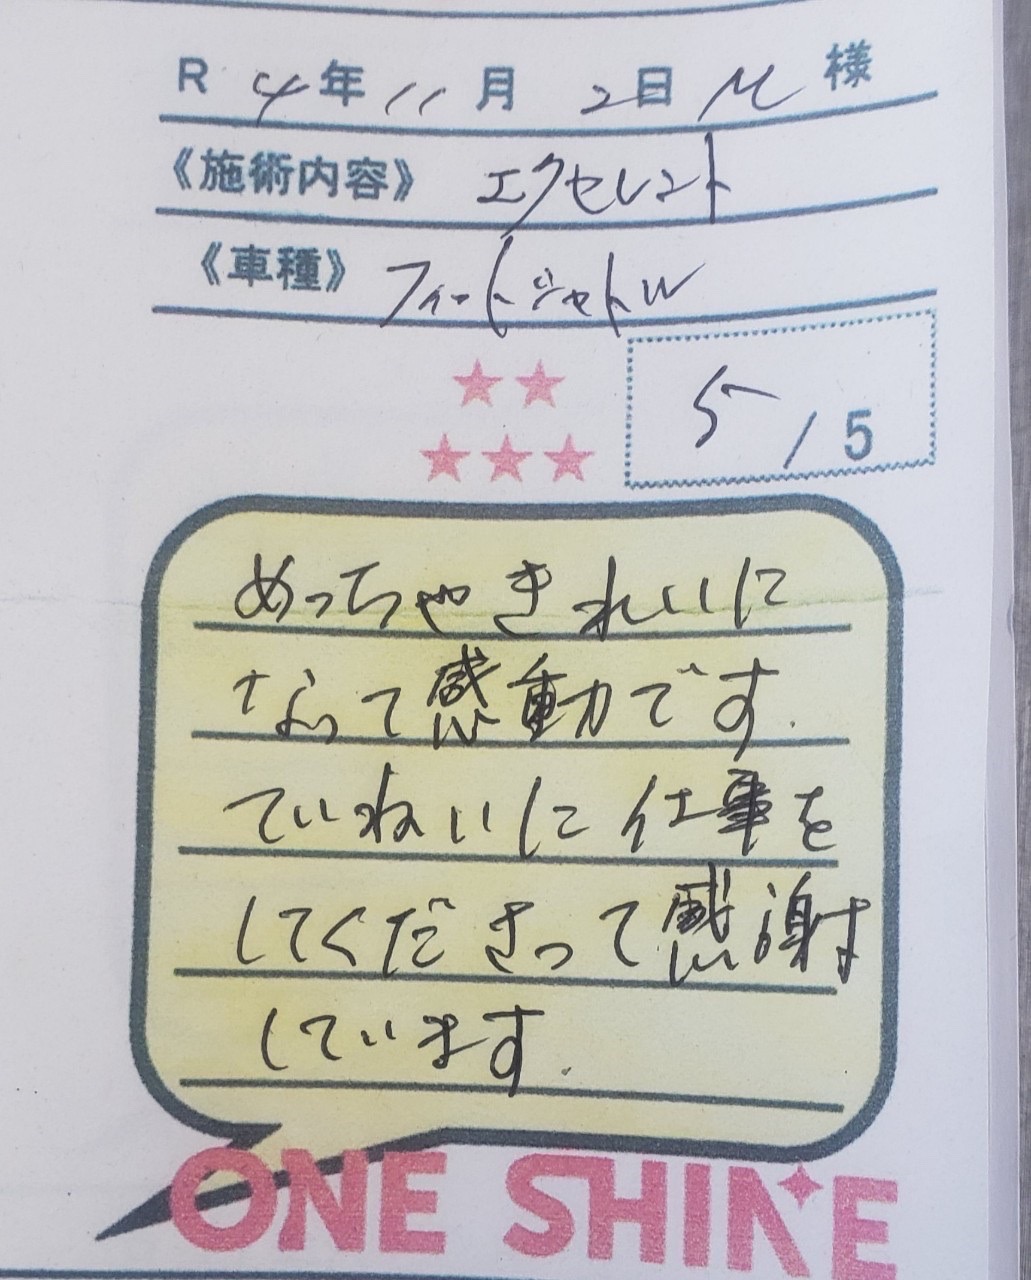 R 4年 11月 2日 M 様
《施術内容》 エクセレント
《車種》 フィットシャトル
5/5
めっちゃきれいに
なって感動です.
ていねいに仕事を
してくださって感謝
しています.
ONE SHINE